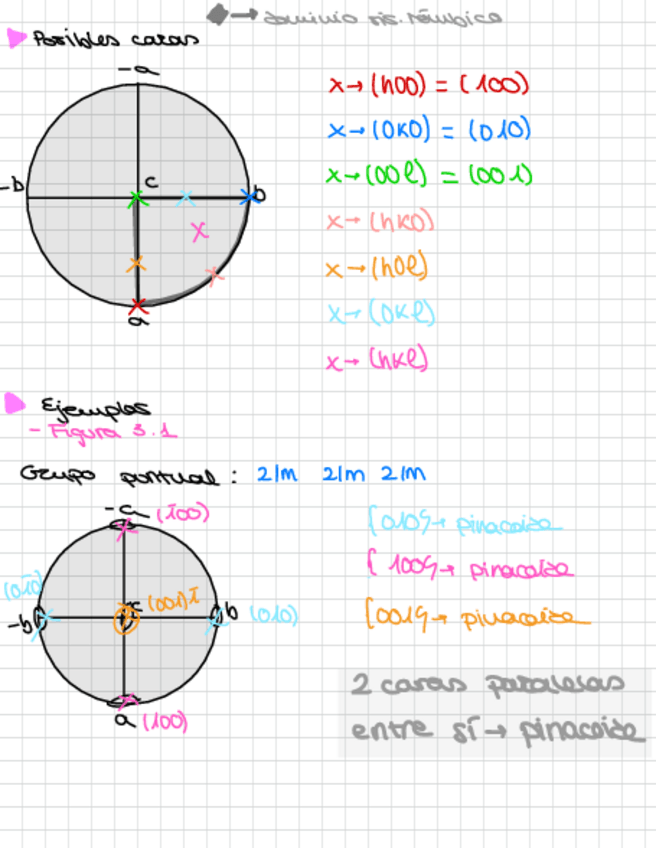 → dominio sis. rómbico
Posibles caras
-a
x→(h00) = (100)
x→(0K0) = (010)
-b
c
b
x→(00l) = (001)
x→(hK0)
x→(h0l)
a
x→(0Kl)
x→(hKl)
Ejemplos
- Figura 3.1
Grupo puntual: 2/m 2/m 2/m
-a (1̄00)
{010}→ pinacoide
{100}→ pinacoide
(01̄0)
-b
c (001) 1̄
b (010)
{001}→ pinacoide
a (100)
2 caras paralelas
entre sí→ pinacoide